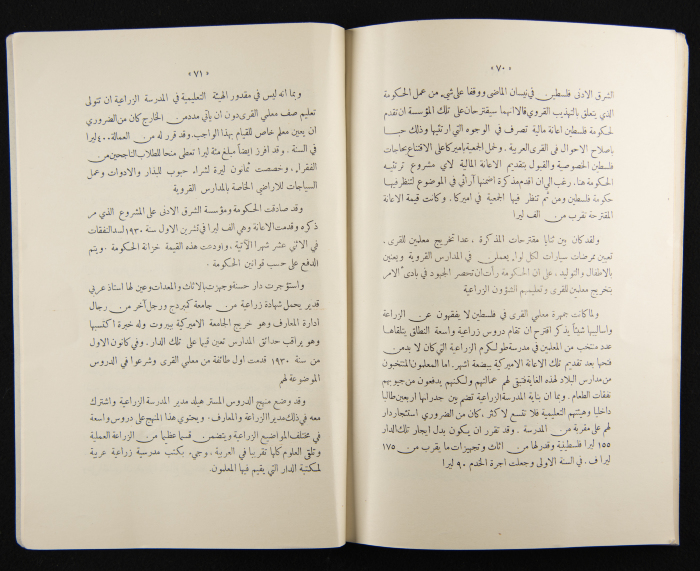 «٧٠»
الشرق الادنى فلسطين في نيسان الماضي ووقفا على شيء من عمل الحكومة
الذي يتعلق بالتهذيب القروي قالا انهما سيقترحان على تلك المؤسسة ان تقدم
لحكومة فلسطين اعانة مالية تصرف في الوجوه التي ارتئيها وذلك حبا
باصلاح الاحوال في القرى العربية . وحمل الجمعية باميركا على الاقتناع بحاجات
فلسطين الخصوصية والقبول بتقديم الاعانة المالية لاي مشروع ترتئيه
الحكومة هنا . رغب الي ان اقدم مذكرة اضمنها آرائي في الموضوع لتنظر فيها
حكومة فلسطين ومن ثم تنظر فيها الجمعية في اميركا . وكانت قيمة الاعانة
المقترحة تقرب من الف ليرا
ولقد كان بين ثنايا مقترحات المذكرة ، عدا تخريج معلمين للقرى .
تعيين ممرضات سيارات لكل لواء يعملن في المدارس القروية ويعنين
بالاطفال والتوليد ، على ان الحكومة رأت ان تحصر الجهود في بادئ الامر
بتخريج معلمين للقرى وتعليمهم الشؤون الزراعية
ولما كانت جمهرة معلمي القرى في فلسطين لا يفقهون عن الزراعة
واساليبها شيئاً يذكر اقترح ان تقام دروس زراعية واسعة النطاق يتلقاها
عدد منتخب من المعلمين في مدرسة طولكرم الزراعية التي كان لا بد من
فتحها بعد تقديم تلك الاعانة الاميركية ببضعة اشهر . اما المعلمون المنتخبون
من مدارس البلاد لهذه الغاية فتبقى لهم عمالتهم ولكنهم يدفعون من جيوبهم
نفقات الطعام . وبما ان بناية المدرسة الزراعية تضم بين جدرانها اربعين طالبا
داخليا وهيئتهم التعليمية فلا تتسع لاكثر ، كان من الضروري استئجار دار
لهم على مقربة من المدرسة . وقد تقرر ان يكون بدل ايجار تلك الدار
١٥٥ ليرا فلسطينية وقدر لها من اثاث وتجهيزات ما يقرب من ١٧٥
ليرا ف . في السنة الاولى وجعلت اجرة الخدم ٩٠ ليرا
«٧١»
وبما انه ليس في مقدور الهيئة التعليمية في المدرسة الزراعية ان تتولى
تعليم صف معلمي القرى دون ان يأتي مدد من الخارج كان من الضروري
ان يعين معلم خاص للقيام بهذا الواجب . وقد قرر له من العمالة ٤٠٠ ليرا
في السنة . وقد افرز ايضاً مبلغ مئة ليرا تعطى منحا للطلاب الناجحين من
الفقراء . وخصصت ثمانون ليرة لشراء حبوب للبذار والادوات وعمل
السياجات للاراضي الخاصة بالمدارس القروية
وقد صادقت الحكومة ومؤسسة الشرق الادنى على المشروع الذي مر
ذكره وقدمت الاعانة وهي الف ليرا في تشرين الاول سنة ١٩٣٠ لسد النفقات
في الاثني عشر شهرا الآتية . واودعت هذه القيمة خزانة الحكومة . ويتم
الدفع على حسب قوانين الحكومة .
واستؤجرت دار حسنة وجهزت بالاثاث والمعدات وعين لها استاذ عربي
قدير يحمل شهادة زراعية من جامعة كمبردج ورجل آخر من رجال
ادارة المعارف وهو خريج الجامعة الاميركية ببيروت وله خبرة اكتسبها
وهو يراقب حدائق المدارس تعين قيما على تلك الدار . وفي كانون الاول
من سنة ١٩٣٠ قدمت اول طائفة من معلمي القرى وشرعوا في الدروس
الموضوعة لهم
وقد وضع منهج الدروس المستر هيلد مدير المدرسة الزراعية واشترك
معه في ذلك مديرا الزراعة والمعارف . ويحتوي هذا المنهج على دروس واسعة
في مختلف المواضيع الزراعية ويتضمن قسما عظيما من الزراعة العملية
وتلقى العلوم كلها تقريبا في العربية . وجيء بكتب مدرسية زراعية عربية
لمكتبة الدار التي يقيم فيها المعلمون .